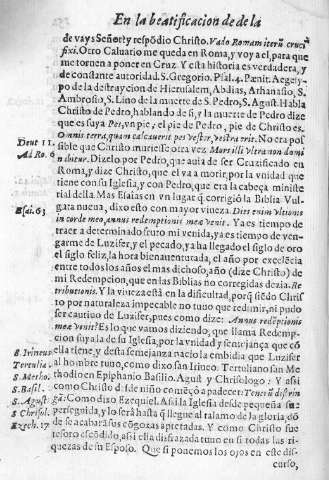 En la beatificacion de de la
de vays Señor? y respõdio Christo. Vado Romam iterũ cruci
fixi. Otro Caluario me queda en Roma, y voy a el, para que
me tornen a poner en Cruz. Y esta historia es verdadera, y
de constante autoridad. S. Gregorio. Psal. 4. Pænit. Aegesy-
po de la destrayciõn de Hierusalem, Abdias, Athanasio, S.
Ambrosio, S. Lino de la muerte de S. Pedro, S. Agust. Habla
Christo de Pedro, hablando de si, y la muerte de Pedro dize
que es suya Pes, vn pie, el pie de Pedro, pie de Christo es.
Deut 11. Omnis terra, quam calcauerit pes vester, vestra erit. No era pos
Ad Ro. 6 sible que Christo muriesse otra vez Mors illi vltra non domi
nabitur. Dizelo por Pedro, que auia de ser Cruzificado en
Roma, y dize Christo, que el va a morir, por la vnidad que
tiene con su Iglesia, y con Pedro, que era la cabeça ministe
rial della. Mas Isaias en vn lugar q̃ corrigiò la Biblia Vul-
Esai. 63 gata nueua, dixo esto con mayor viueza. Dies enim vltionis
in corde meo, annus redemptionis meæ venit. Ya es tiempo de
traer a determinado feuro mi venida, ya es tiempo de ven-
garme de Luzifer, y el pecado, ya ha llegado el siglo de oro
el siglo feliz, la hora bienauenturada, el año por excelẽcia
entre todo los años el mas dichoso, año (dize Christo) de
mi Redempcion, que en las Biblias no corregidas dezia. Re
tributionis. Y la viueza està en la dificultad, porq̃ siẽdo Chris
to por naturaleza impecable no tuuo que redimir, ni pudo
ser cautiuo de Luzifer, pues como dize: Annus redẽptionis
meæ venit? Es lo que vamos diziendo, que llama Redemp-
cion suya la de su Iglesia, por la vnidad y semejança que cõ
S. Irineus ella tiene, y desta semejança nacio la embidia que Luzifer
Tertulia. al hombre tuuo, como dize san Irineo. Tertuliano san Me
S. Metho. thodio en Epiphanio Basilio. Agust y Chrisologo: Y assi
S. Basil. como Christo desde niño começò a padecer: Tenerũ distrin
S. Agust. gã: Como dixo Ezequiel. Assi la Iglesia desde pequeña fue
S Chrisol. perseguida, y lo serà hasta q̃ llegue al talamo de la gloria, dõ
Ezech. 17 de se acabarà sus cõgoxas apretadas. Y como Christo fue
tesoro escõdido, assi ella disfraçada tuuo en si todas las ri-
quezas de su Esposo. Que si ponemos los ojos en este dis-
curso,